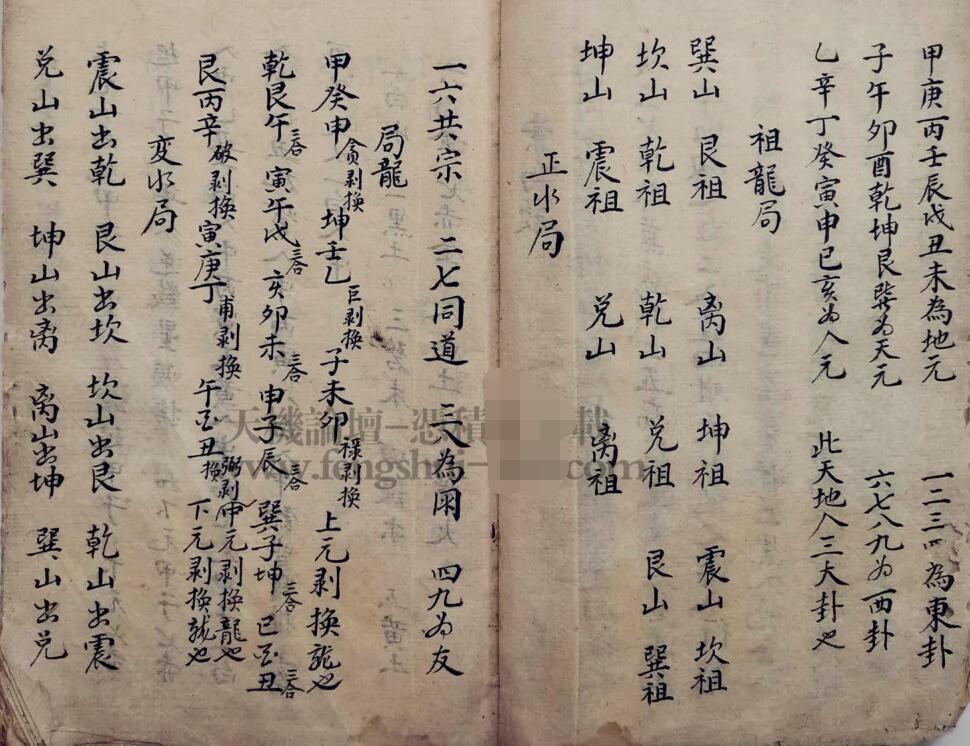 甲庚丙壬辰戌丑未為地元 一二三四為東卦
子午卯酉乾坤艮巽为天元 六七八九为西卦
乙辛丁癸寅申巳亥为人元 此天地人三大卦也
祖龍局
巽山 艮祖 离山 坤祖 震山 坎祖
坎山 乾祖 乾山 兑祖 艮山 巽祖
坤山 震祖 兑山 离祖
正水局
一六共宗 二七同道 三八為朋 四九为友
局龍
甲癸申貪剥換 坤壬乙巨剥換 子未卯禄剥換 上元剥換龍也
乾艮午三合 寅午戌三合 亥卯未三合 申子辰三合 巽子坤三合 巳酉丑三合
艮丙辛破剥換 寅庚丁甫剥換 午酉丑弼剥換 中元剥換龍也
下元剥換龍也
变水局
震山出乾 艮山出坎 坎山出艮 乾山出震
兑山出巽 坤山出离 离山出坤 巽山出兑
天機論壇-憑積 載
www.fengshui- .com